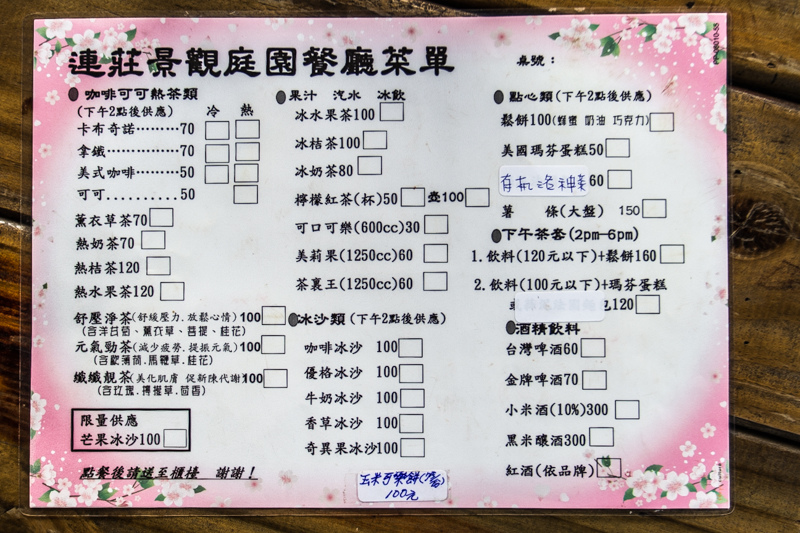 連莊景觀庭園餐廳菜單
桌號：
咖啡可可熱茶類
(下午2點後供應) 冷 熱
卡布奇諾………70
拿鐵…………70
美式咖啡……50
可可..........50
薰衣草茶70
熱奶茶70
熱桔茶120
熱水果茶120
舒壓淨茶(舒緩壓力.放鬆心情)100
(含洋甘菊、薰衣草、菩提、桂花)
元氣勁茶(減少疲勞.提振元氣)100
(含歐薄荷.馬鞭草.桂花)
纖纖靚茶(美化肌膚 促新陳代謝)100
(含玫瑰.檸檬草.茴香)
限量供應
芒果冰沙100
點餐後請送至櫃檯 謝謝！
果汁 汽水 冰飲
冰水果茶100
冰桔茶100
冰奶茶80
檸檬紅茶(杯)50 壺100
可口可樂(600cc)30
美莉果(1250cc)60
茶裏王(1250cc)60
冰沙類(下午2點後供應)
咖啡冰沙 100
優格冰沙 100
牛奶冰沙 100
香草冰沙 100
奇異果冰沙100
玉米可樂餅(6台)
100元
點心類(下午2點後供應)
鬆餅100(蜂蜜 奶油 巧克力)
美國瑪芬蛋糕50
有机洛神美 60
薯 條(大盤) 150
下午茶套(2pm-6pm)
1.飲料(120元以下)+鬆餅160
2.飲料(100元以下)+瑪芬蛋糕
120
酒精飲料
台灣啤酒60
金牌啤酒70
小米酒(10%)300
黑米釀酒300
紅酒(依品牌)